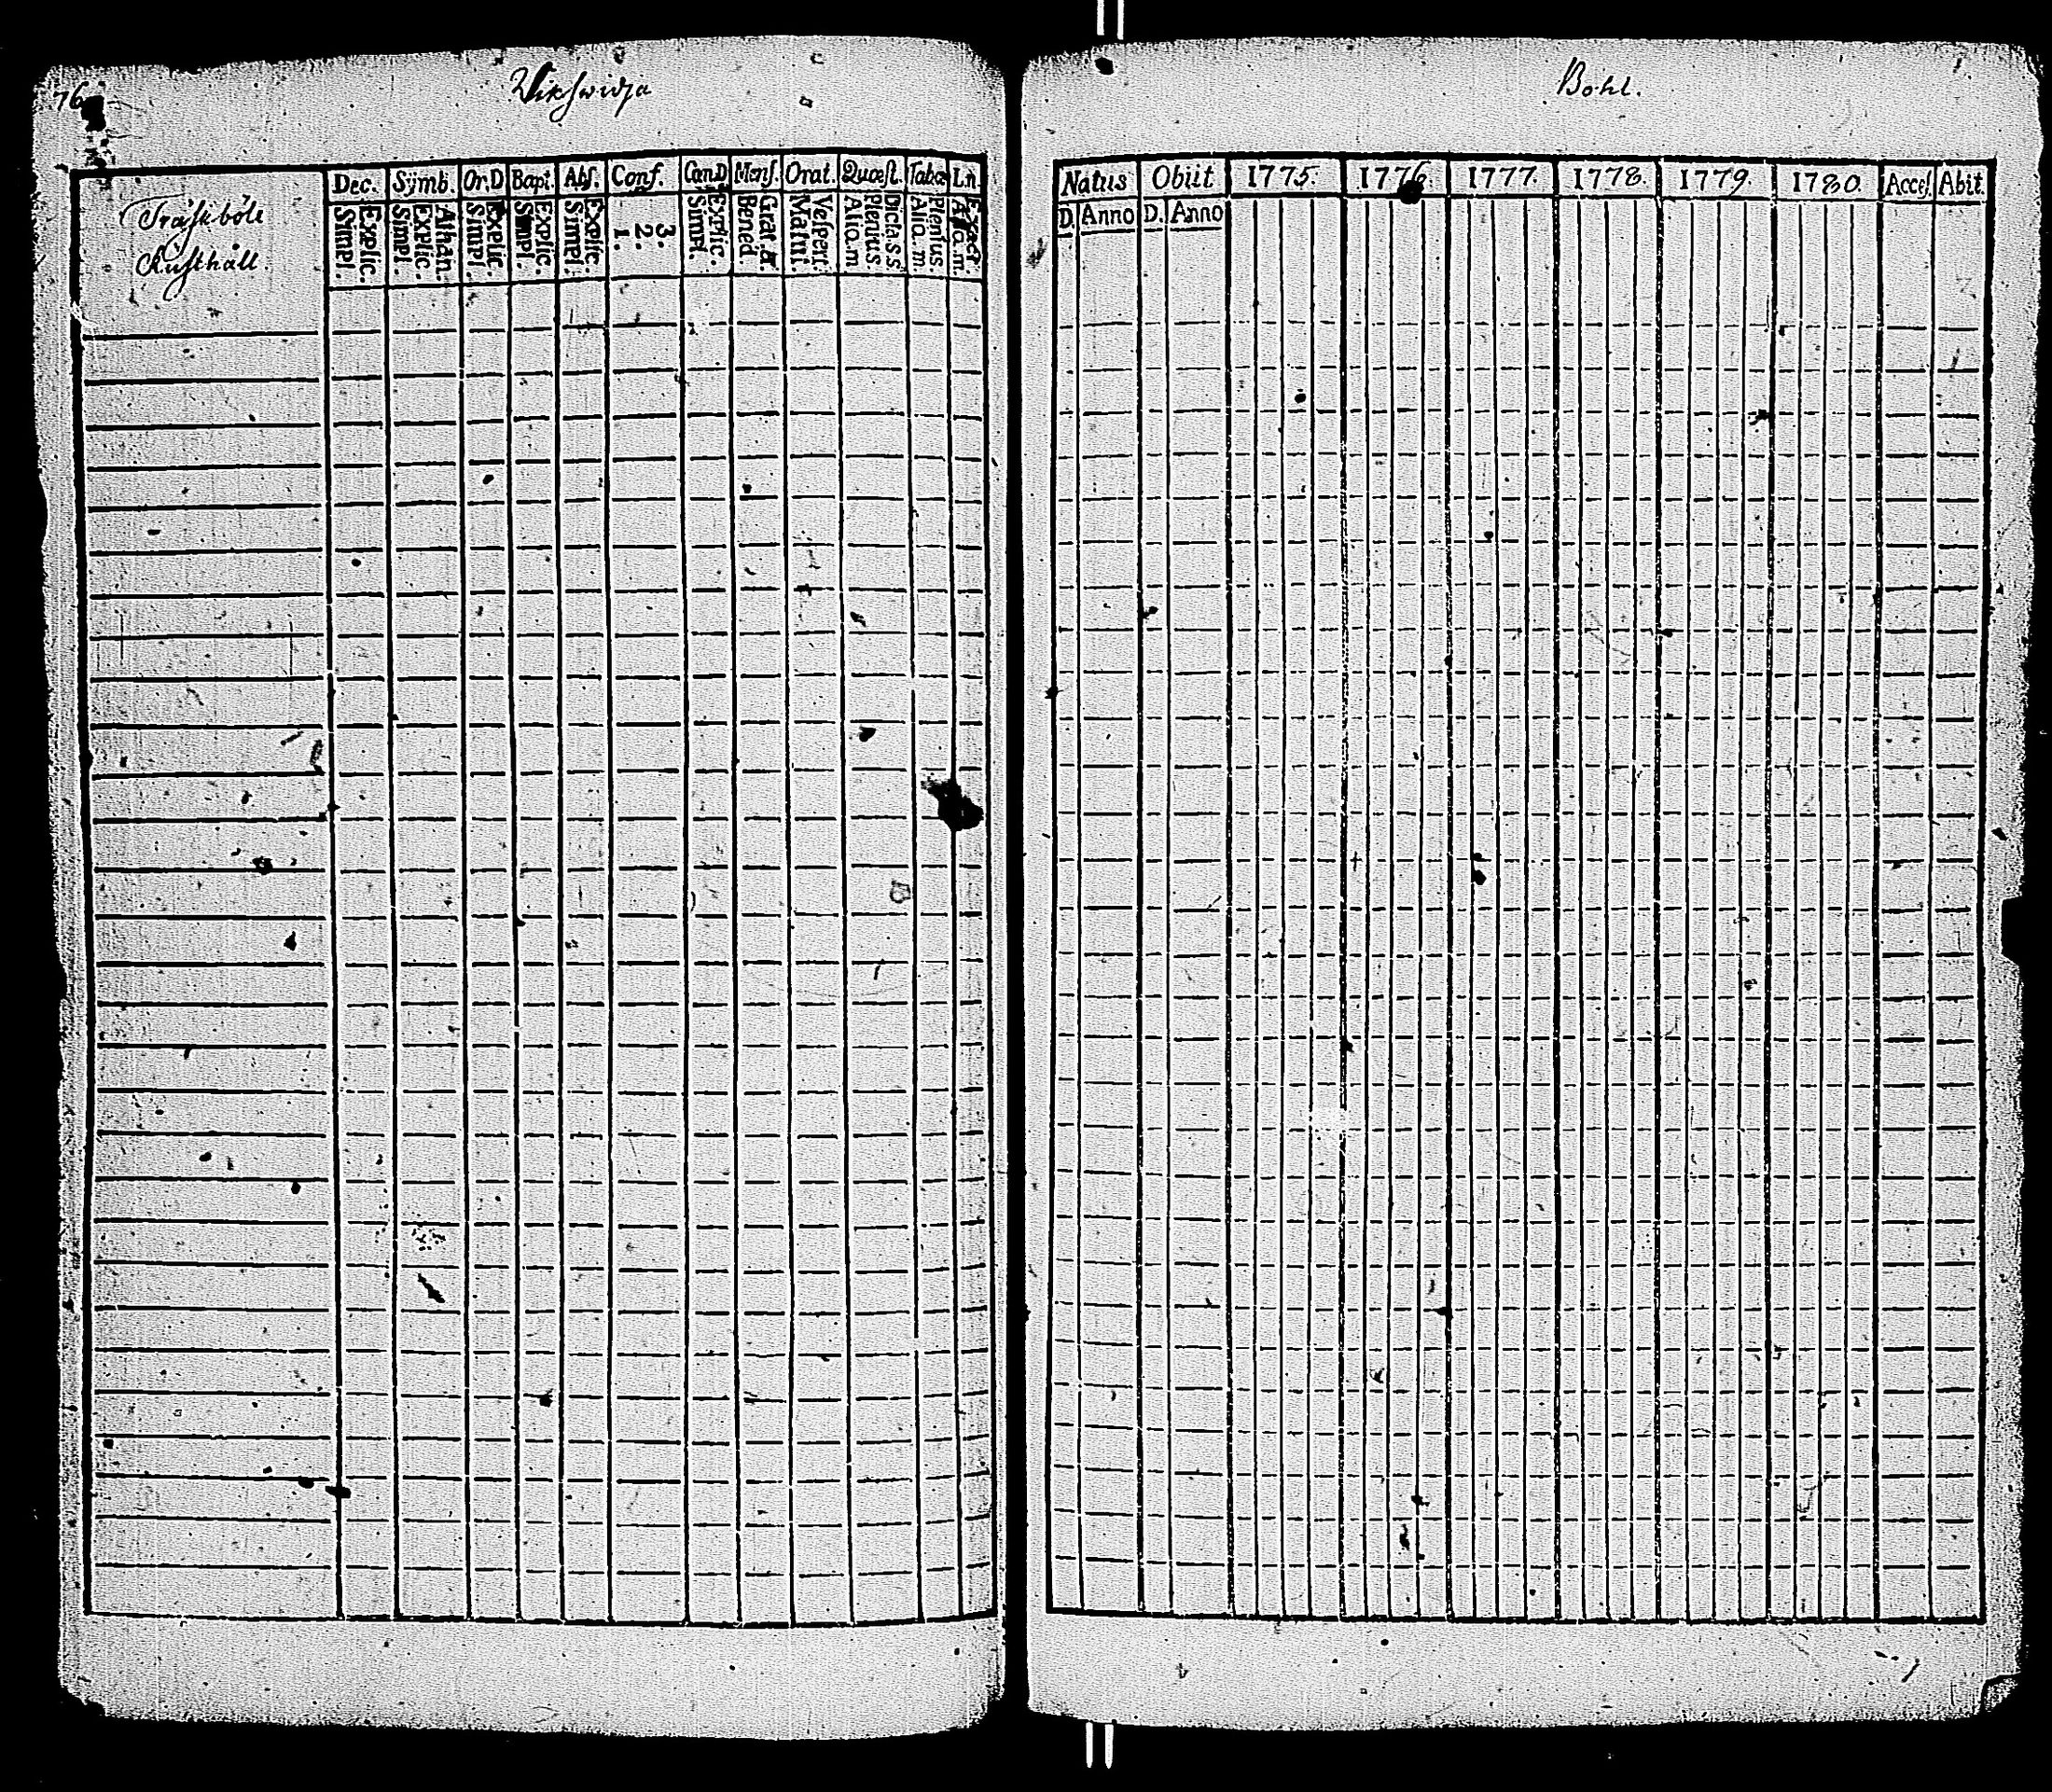 76
Wikswidja
Bohl.
Träskböle
Rusthåll.
Dec. Sÿmb. Or.D Bapt. Abs. Conf. Cœn.D Mens. Orat. Quœst. Tabœ Ln.
Explic. Simpl.
Athan. Explic. Simpl.
Explic. Simpl.
Explic. Simpl.
Explic. Simpl.
3. 2. 1.
Explic. Simpl.
Grat.a. Bened.
Vesperi. Matut.
Dicta.s.s Plenius Aliq.m
Plenius. Aliq.m.
Exact. Aliq.m.
Natus Obiit 1775. 1776. 1777. 1778. 1779. 1780. Access. Abit.
D. Anno D. Anno